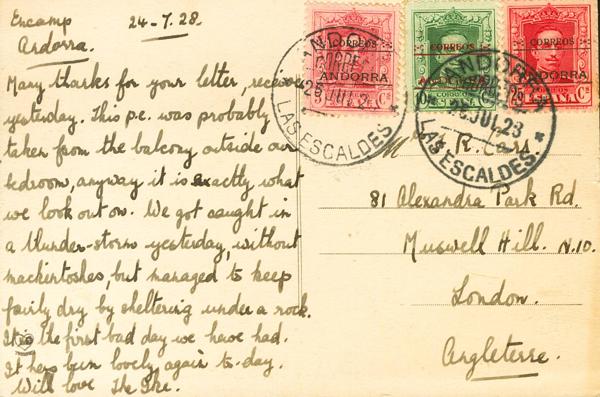 Encamp 24-7.28.
Andorra.
Many thanks for your letter, received
yesterday. This p.c. was probably
taken from the balcony outside our
bedroom, anyway it is exactly what
we look out on. We got caught in
a thunder-storm yesterday, without
mackintoshes, but managed to keep
fairly dry by sheltering under a rock.
It is the first bad day we have had.
It has been lovely again to-day.
With love
CORREOS
ANDORRA
CORREOS
ANDORRA
CORREOS
ANDORRA
ANDORRA
25 JUL 2
LAS ESCALDES
ANDORRA
JUL 23
LAS ESCALDES
R.
81 Alexandra Park Rd.
Muswell Hill. N.10.
London.
Angleterre.